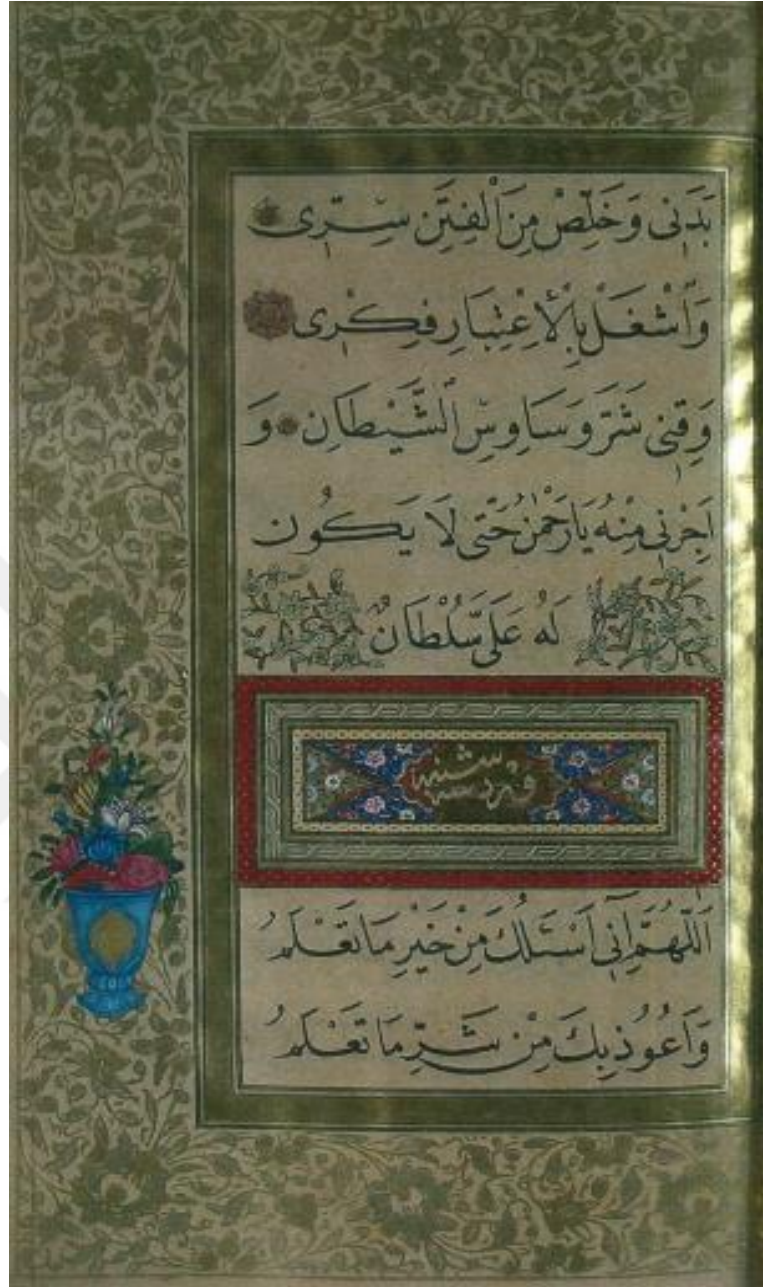 بَدَنِى وَخَلِّصْ مِنَ الْفِتَنِ سِرِّى
وَاشْغَلْ بِالْاِعْتِبَارِ فِكْرِى
وَقِنِى شَرَّ وَسَاوِسِ الشَّيْطَانِ وَ
اَجِرْنِى مِنْهُ يَا رَحْمٰنُ حَتّٰى لَا يَكُونَ
لَهُ عَلَىَّ سُلْطَانٌ
اَللّٰهُمَّ اِنِّى اَسْئَلُكَ مِنْ خَيْرِ مَا تَعْلَمُ
وَاَعُوذُ بِكَ مِنْ شَرِّ مَا تَعْلَمُ